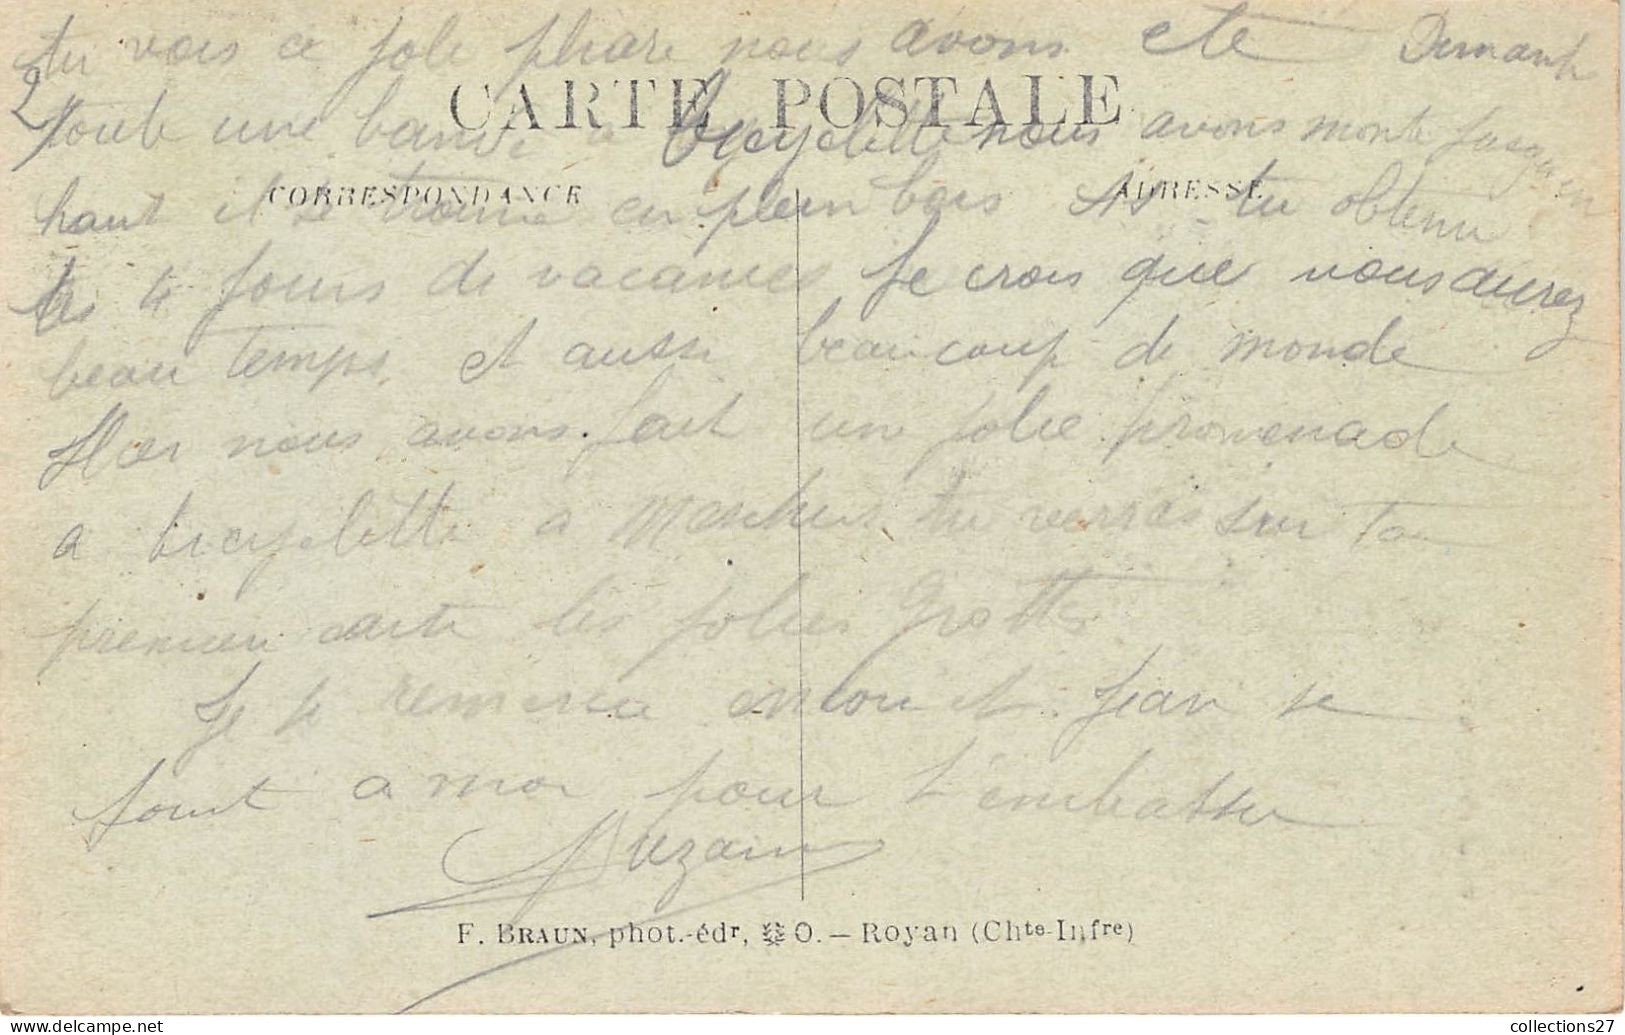 tu vois ce jolie phare nous avons ete Dimanch
2
CARTE POSTALE
toute une bande a bicyclette nous avons monte jusqu'en
CORRESPONDANCE
ADRESSE
haut il se trouve en plein bois As tu obtenu
tes 4 jours de vacances Je crois que vous aurez
beau temps et aussi beaucoup de monde
Hier nous avons fait un jolie promenade
a bicyclette a tu verras sur ta
premier carte les jolies grottes
Je te remercie encore et Jean se
joint a moi pour t'embrasser
Suzanne
F. BRAUN, phot.-édr, O. — Royan (Chte-Infre)
collections27